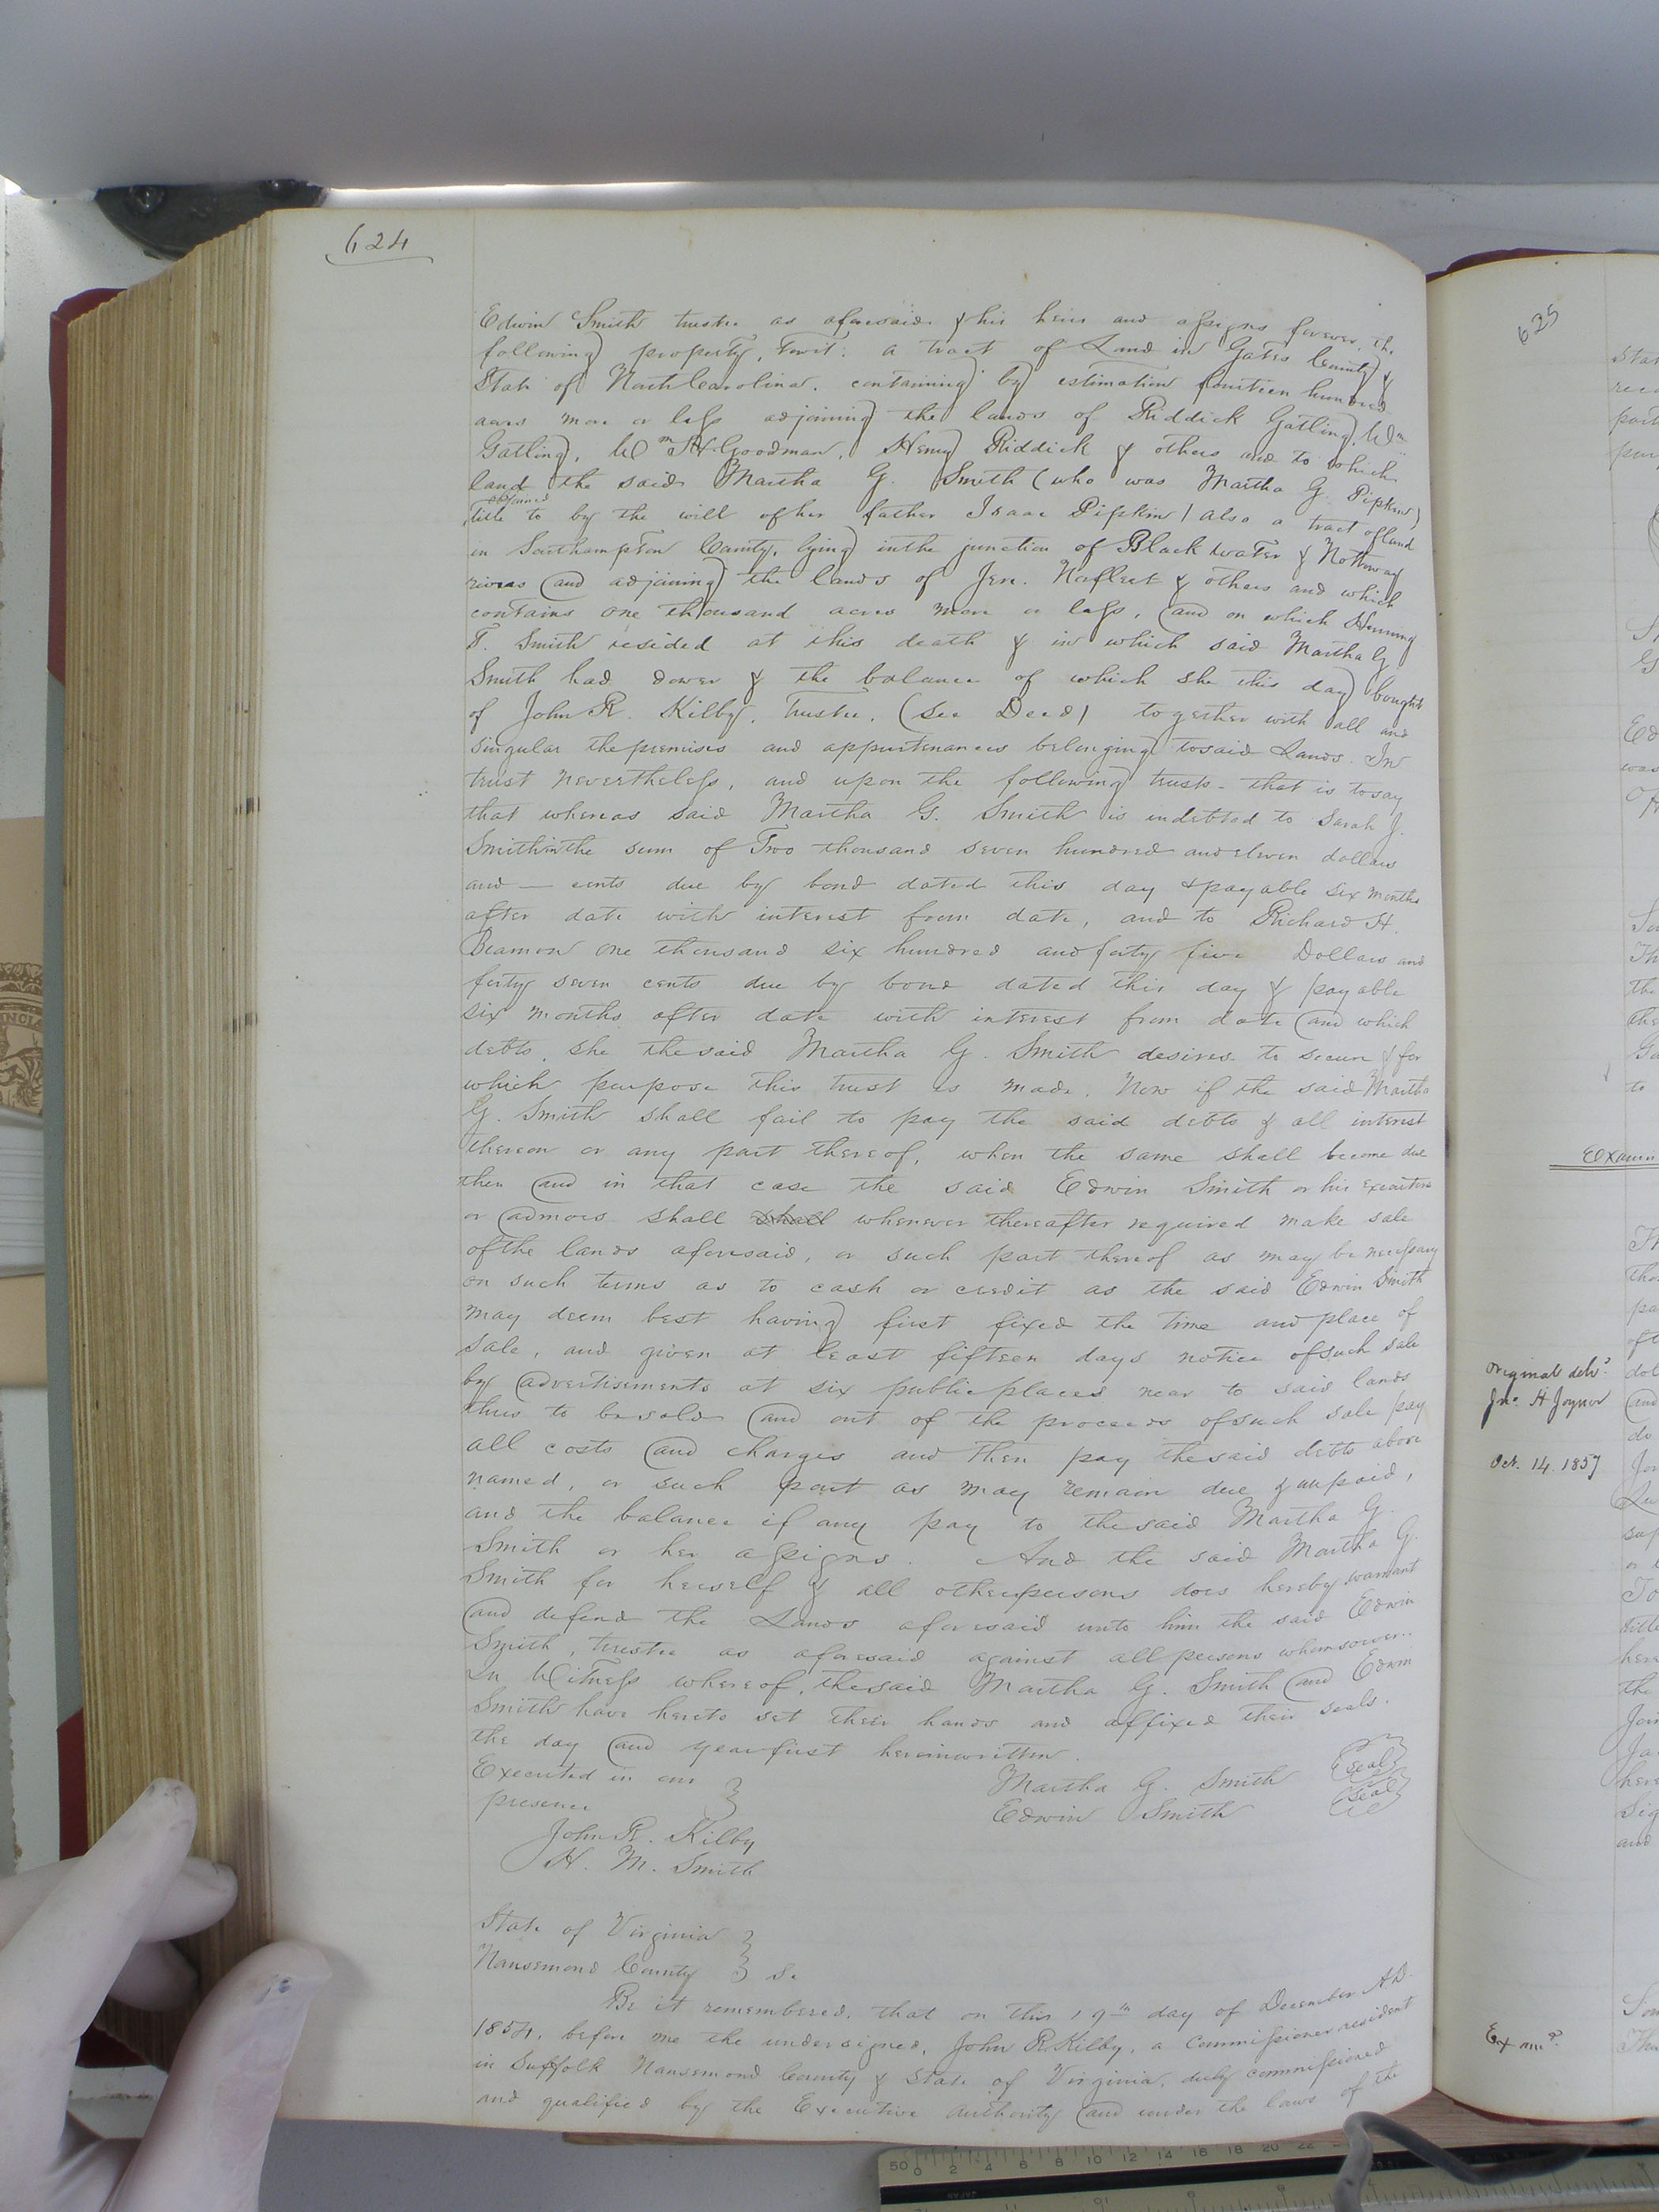 624
Edwin Smith trustee as aforesaid & his heirs and assigns forever, the
following property, towit: a tract of Land in Gates County &
State of North Carolina, containing by estimation fourteen hundred
acres more or less adjoining the lands of Riddick Gatling, Wm
Gatling, Wm H. Goodman, Henry Riddick & others and to which
land the said Martha G. Smith (who was Martha G. Pipkin)
obtained
title to by the will of her father Isaac Pipkin / also a tract of land
in Southampton County, lying in the junction of Black water & Nottoway
rivers and adjoining the lands of Jen. Norfleet & others and which
contains one thousand acres more or less, and on which Henning
T. Smith resided at his death & in which said Martha G
Smith had dower & the balance of which she this day bought
of John R. Kilby, Trustee, (see Deed) together with all and
singular the premises and appurtenances belonging to said Lands. In
trust nevertheless, and upon the following trusts - that is to say
that whereas said Martha G. Smith is indebted to Sarah J.
Smith in the sum of Two thousand seven hundred and eleven dollars
and — cents due by bond dated this day & payable six months
after date with interest from date, and to Richard H.
Beamon one thousand six hundred and forty five Dollars and
forty seven cents due by bond dated this day & payable
six months after date with interest from date and which
debts, she the said Martha G. Smith desires to secure & for
which purpose this trust is made. Now if the said Martha
G. Smith shall fail to pay the said debts & all interest
thereon or any part thereof, when the same shall become due
then and in that case the said Edwin Smith or his executors
or admors shall shall whenever thereafter required make sale
of the lands aforesaid, or such part thereof as may be necessary
on such terms as to cash or credit as the said Edwin Smith
may deem best having first fixed the time and place of
sale, and given at least fifteen days notice of such sale
by advertisements at six public places near to said lands
thus to be sold and out of the proceeds of such sale pay
all costs and charges and then pay the said debts above
named, or such part as may remain due & unpaid,
and the balance if any pay to the said Martha G.
Smith or her assigns. And the said Martha G.
Smith for herself & all other persons does hereby warrant
and defend the Lands aforesaid unto him the said Edwin
Smith, trustee as aforesaid against all persons whomsoever..
In Witness whereof, the said Martha G. Smith and Edwin
Smith have hereto set their hands and affixed their seals.
the day and year first herein written.
Executed in our
presence
Martha G. Smith Seal
Edwin Smith Seal
John R. Kilby
H. M. Smith
State of Virginia
Nansemond County S.
Be it remembered, that on this 19th day of December A.D.
1854, before me the undersigned, John R. Kilby, a commissioner resident
in Suffolk Nansemond County & State of Virginia, duly commissioned
and qualified by the Executive authority and under the laws of the
625
Original deld.
Jno. H Joyner
Oct. 14. 1857
Examd.